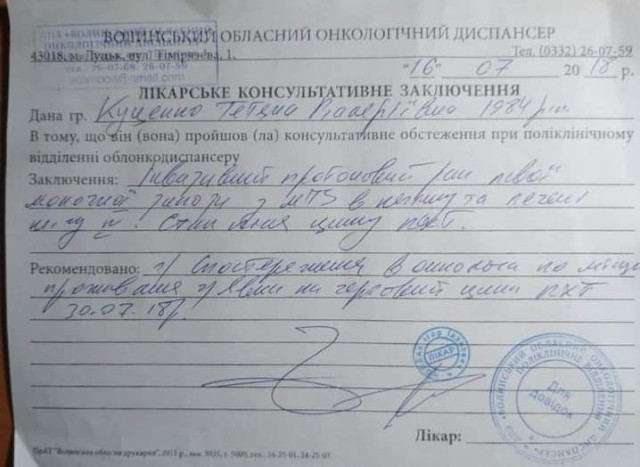 ВОЛИНСЬКИЙ ОБЛАСНИЙ ОНКОЛОГІЧНИЙ ДИСПАНСЕР
43018, м. Луцьк, вул. Тімірязєва, 1. Тел. (0332) 26-07-59
"16" 07 2018 р.
ЛІКАРСЬКЕ КОНСУЛЬТАТИВНЕ ЗАКЛЮЧЕННЯ
Дана гр. Куценко Тетяна Валеріївна 1984 р.н.
В тому, що він (вона) пройшов (ла) консультативне обстеження при поліклінічному
відділенні облонкодиспансеру
Заключення: Інвазивний протоковий рак лівої
молочної залози з mts в печінку та
ст. IV. Стан після циклу ПХТ.
Рекомендовано: 1) Спостереження в онколога по місцю
проживання 2) Явка на черговий цикл ПХТ
30.07.18р.
ЛІКАР
Для довідок
Лікар: